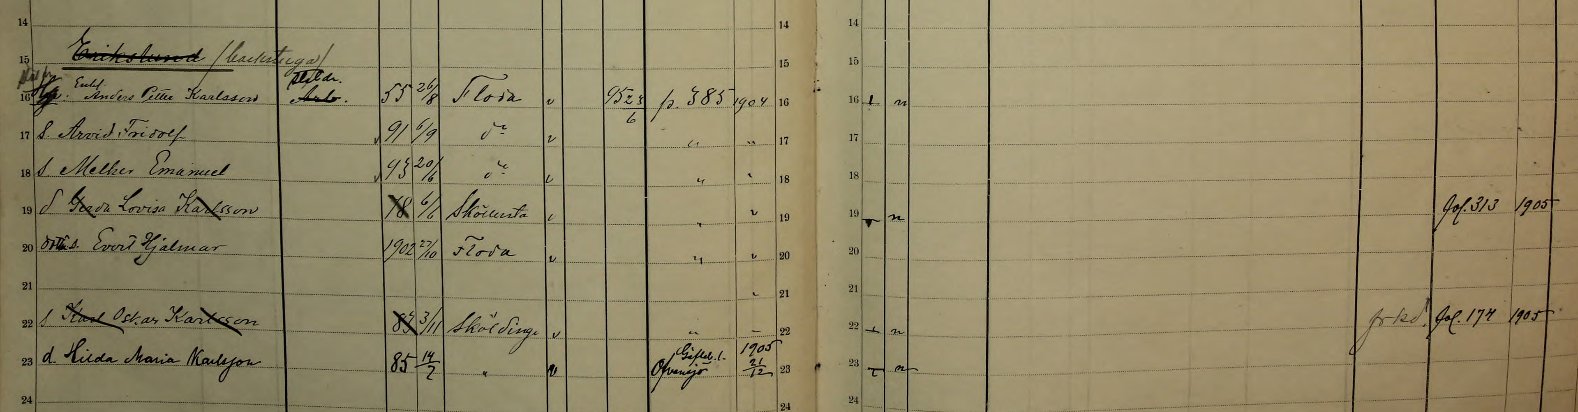 14 14 14
15 Erikslund /backstuga/ 15 15
16 Enkl. Anders Petter Karlsson Arb. 55 26/8 Floda v 95 23/6 p. 385 1904 16 16 n
17 S. Arvid Fridolf 91 6/9 do v „ „ 17 17
18 S Melker Emanuel 93 20/6 do v „ „ 18 18
19 d Gerda Lovisa Karlsson 78 6/6 Sköllersta v „ v 19 19 n fol. 313 1905
20 s. Evert Hjalmar 1902 27/10 Floda v „ v 20 20
21 21 21
22 S Karl Oskar Karlsson 83 3/11 Sköldinge v „ 22 22 n frkd. fol. 174 1905
23 d. Hilda Maria Karlsson 85 14/2 „ v Ofvansjö Gefleb. l. 1905 21/12 23 23 n
24 24 24